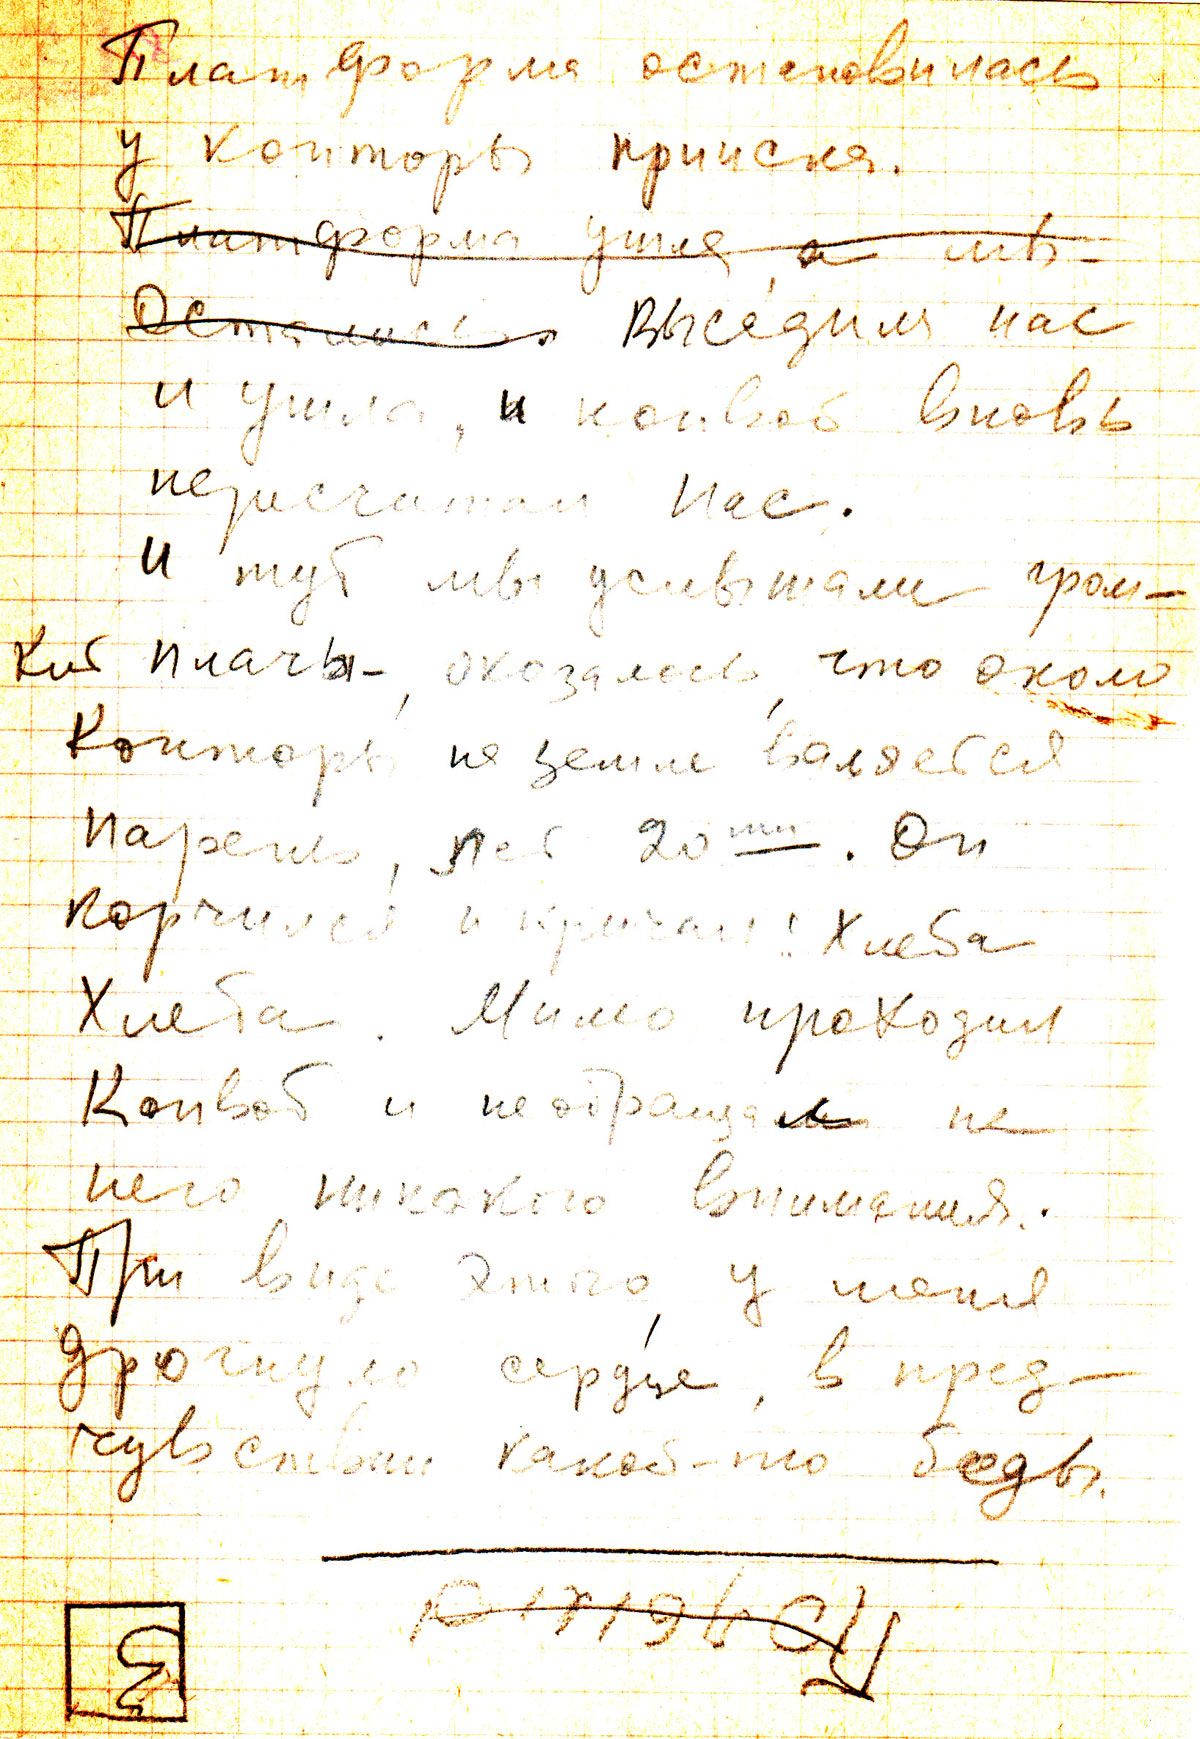 Платформа остановилась
у конторы прииска.
Платформа ушла, а мы-
Остались. Выседила нас
и ушла, и конвой вновь
пересчитал нас.
И тут мы услышали гром-
кий плачь-, оказалось, что около
Конторы на земле валяется
парень, лет 20ти. Он
корчился и кричал: Хлеба
Хлеба. Мимо проходил
Конвой и необращали на
него никакого внимания.
При виде этого, у меня
дрогнуло сердце, в пред-
чувствии какой-то беды.
3